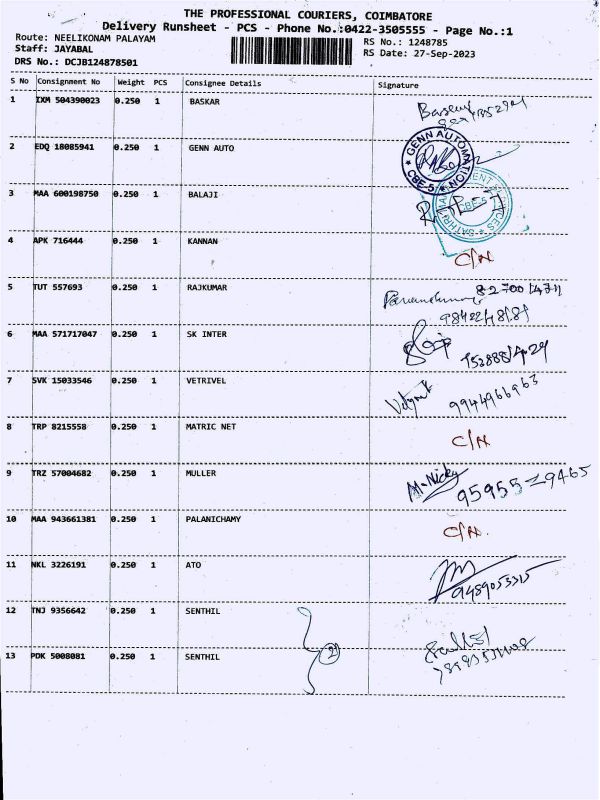 THE PROFESSIONAL COURIERS, COIMBATORE
Delivery Runsheet - PCS - Phone No.:0422-3505555 - Page No.:1
Route: NEELIKONAM PALAYAM RS No.: 1248785
Staff: JAYABAL RS Date: 27-Sep-2023
DRS No.: DCJB124878501
S No Consignment No Weight PCS Consignee Details Signature
1 IXM 504390023 0.250 1 BASKAR
2 EDQ 18085941 0.250 1 GENN AUTO GENN AUTOMATION CBE-5
3 MAA 600198750 0.250 1 BALAJI CBE-5
4 APK 716444 0.250 1 KANNAN C/N
5 TUT 557693 0.250 1 RAJKUMAR
6 MAA 571717047 0.250 1 SK INTER
7 SVK 15033546 0.250 1 VETRIVEL 9944966963
8 TRP 8215558 0.250 1 MATRIC NET C/N
9 TRZ 57004682 0.250 1 MULLER M-Nicky 95955 29465
10 MAA 943661381 0.250 1 PALANICHAMY C/N
11 NKL 3226191 0.250 1 ATO 9489053315
12 TNJ 9356642 0.250 1 SENTHIL
13 PDK 5008081 0.250 1 SENTHIL 2